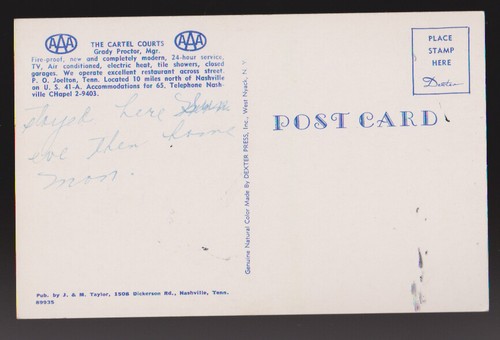 AAA
THE CARTEL COURTS
AAA
Grady Proctor, Mgr.
Fire-proof, new and completely modern, 24-hour service,
TV, Air conditioned, electric heat, tile showers, closed
garages. We operate excellent restaurant across street.
P. O. Joelton, Tenn. Located 10 miles north of Nashville
on U. S. 41-A. Accommodations for 65. Telephone Nash-
ville CHapel 2-9403.
stayed here Sun
eve then home
Mon.
Pub. by J. & M. Taylor, 1506 Dickerson Rd., Nashville, Tenn.
89935
Genuine Natural Color Made By DEXTER PRESS, Inc., West Nyack, N. Y.
POST CARD
PLACE
STAMP
HERE
Dexter